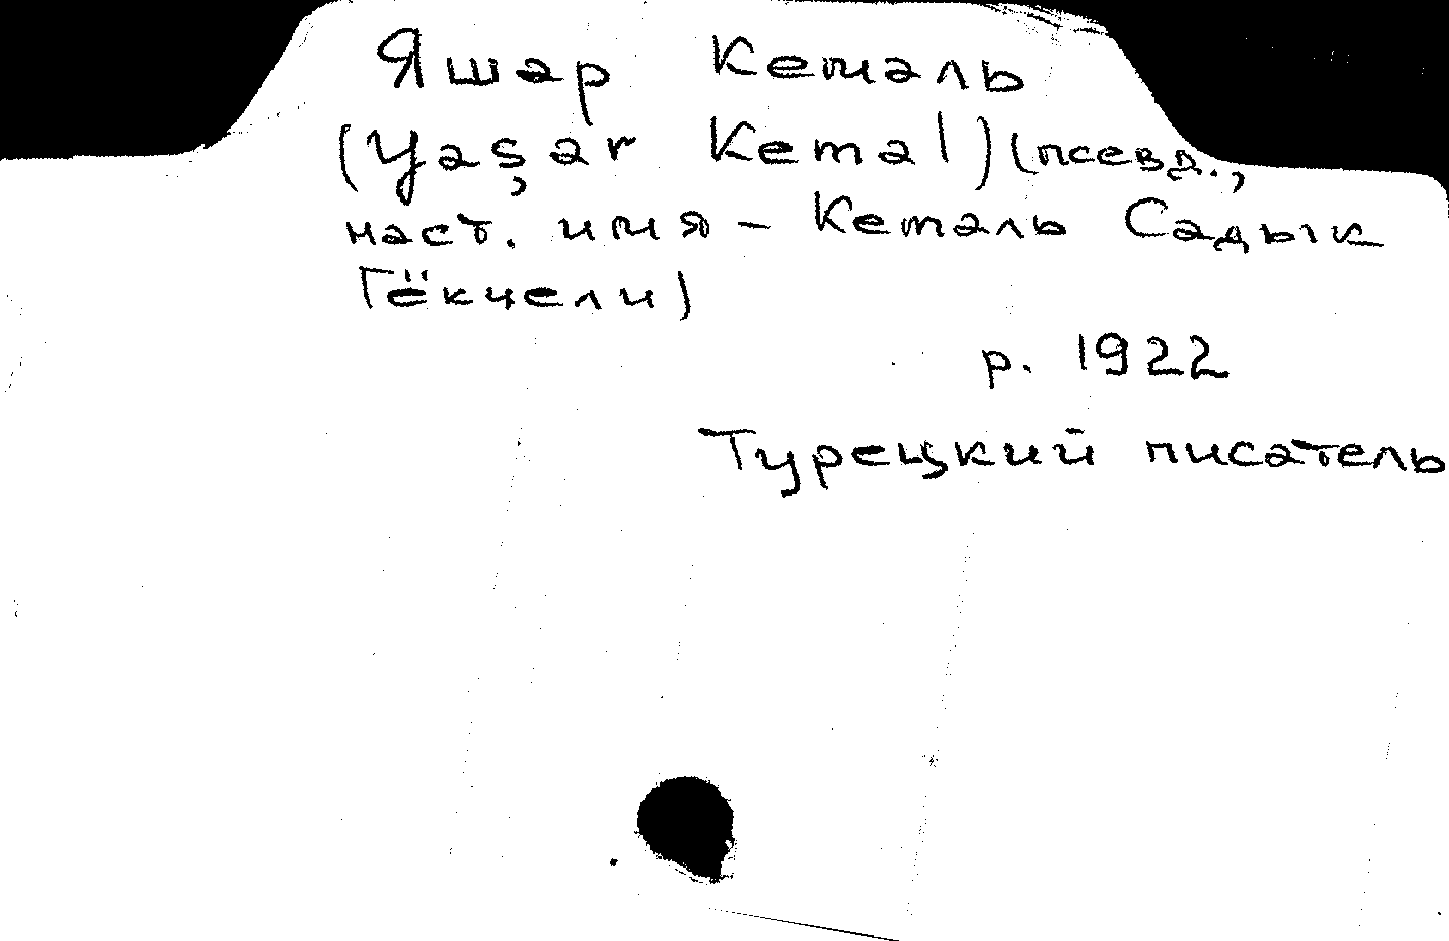 Яшар Кемаль
(Yaşar Kemal) (псевд.,
наст. имя – Кемаль Садык
Гёкчели)
р. 1922
Турецкий писатель